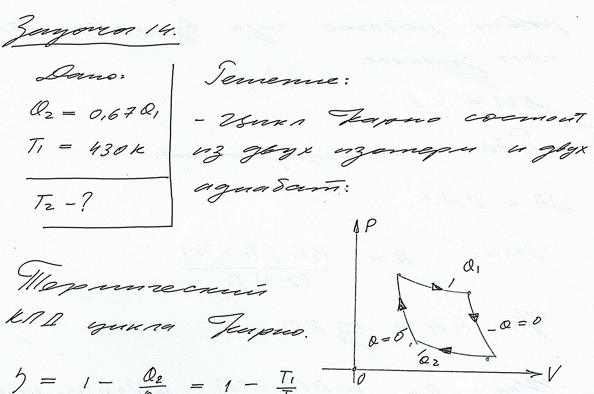 Задача 14.
Дано:
Q₂ = 0,67Q₁
T₁ = 430 К
T₂ - ?
Решение:
- Цикл Карно состоит
из двух изотерм и двух
адиабат:
P
Q₁
Q=0
Q=0
Q₂
0
V
Термический
КПД цикла Карно.
η = 1 - Q₂/ = 1 - T₁/